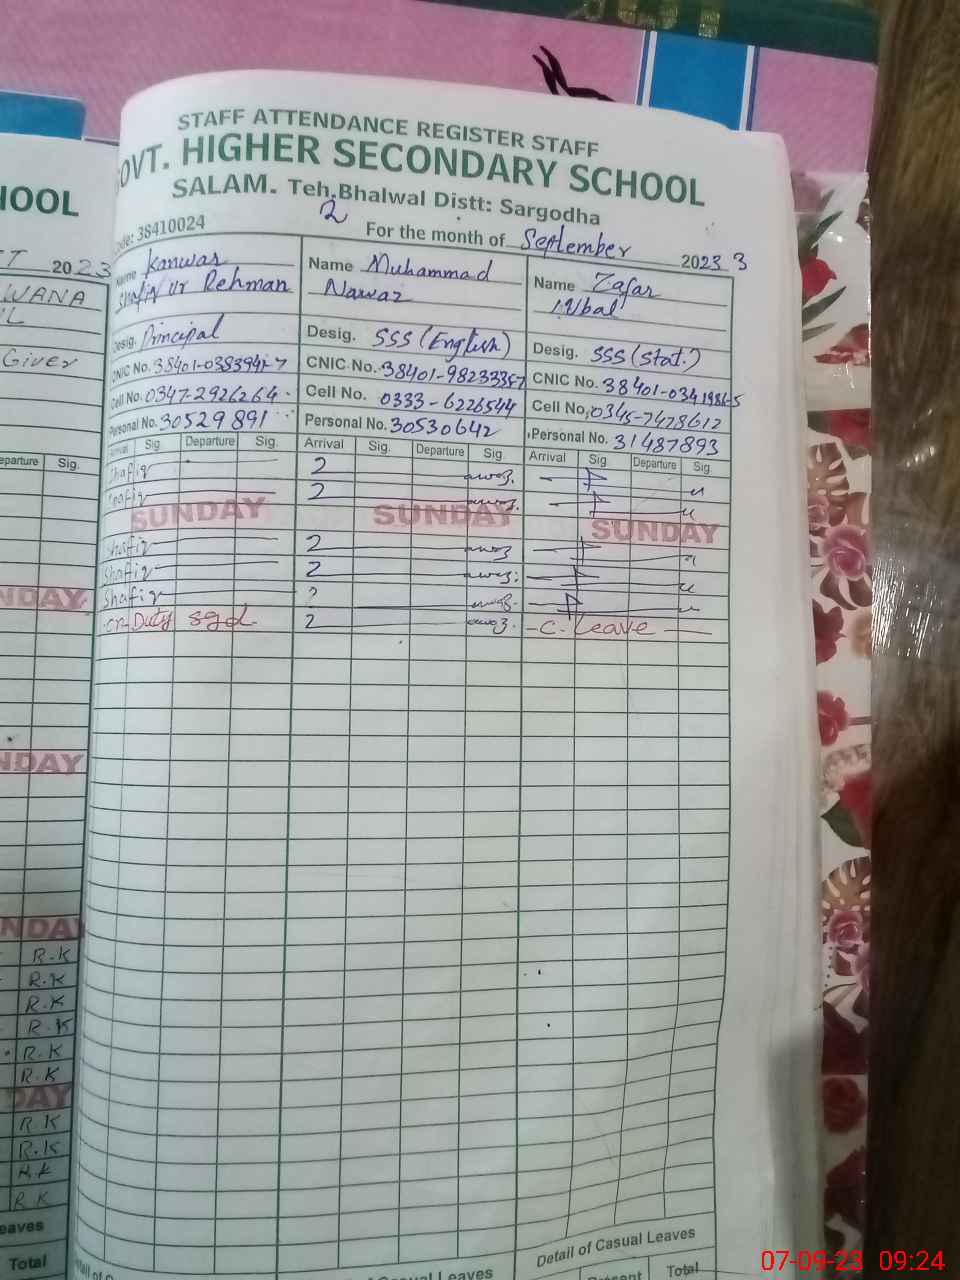 STAFF ATTENDANCE REGISTER STAFF
OVT. HIGHER SECONDARY SCHOOL
SALAM. Teh.Bhalwal Distt: Sargodha
2
Code: 38410024
For the month of September 2023 3
Name Kanwar
Shafiq ur Rehman
Desig. Principal
CNIC No.
Cell No. 0347-2926264
Personal No. 30529891
Arrival Sig. Departure Sig.
Shafiq
Shafiq
SUNDAY
Shafiq
Shafiq
Shafiq
on Duty sgd.
Name Muhammad
Nawaz
Desig. SSS (English)
CNIC No.
Cell No. 0333-6226544
Personal No. 30530642
Arrival Sig. Departure Sig.
2
2
SUNDAY
2
2
2
2
Name Zafar
Iqbal
Desig. SSS (Stat.)
CNIC No.
Cell No. 0345-7478612
Personal No. 31487893
Arrival Sig Departure Sig.
SUNDAY
C. Leave
Detail of Casual Leaves
Present Total
Casual Leaves
HOOL
2023
WANA
Giver
eparture Sig.
NDAY
NDAY
NDAY
R.K
R.K
R.K
R.K
R.K
R.K
DAY
R.K
R.K
R.K
R.K
eaves
Total
07-09-23 09:24